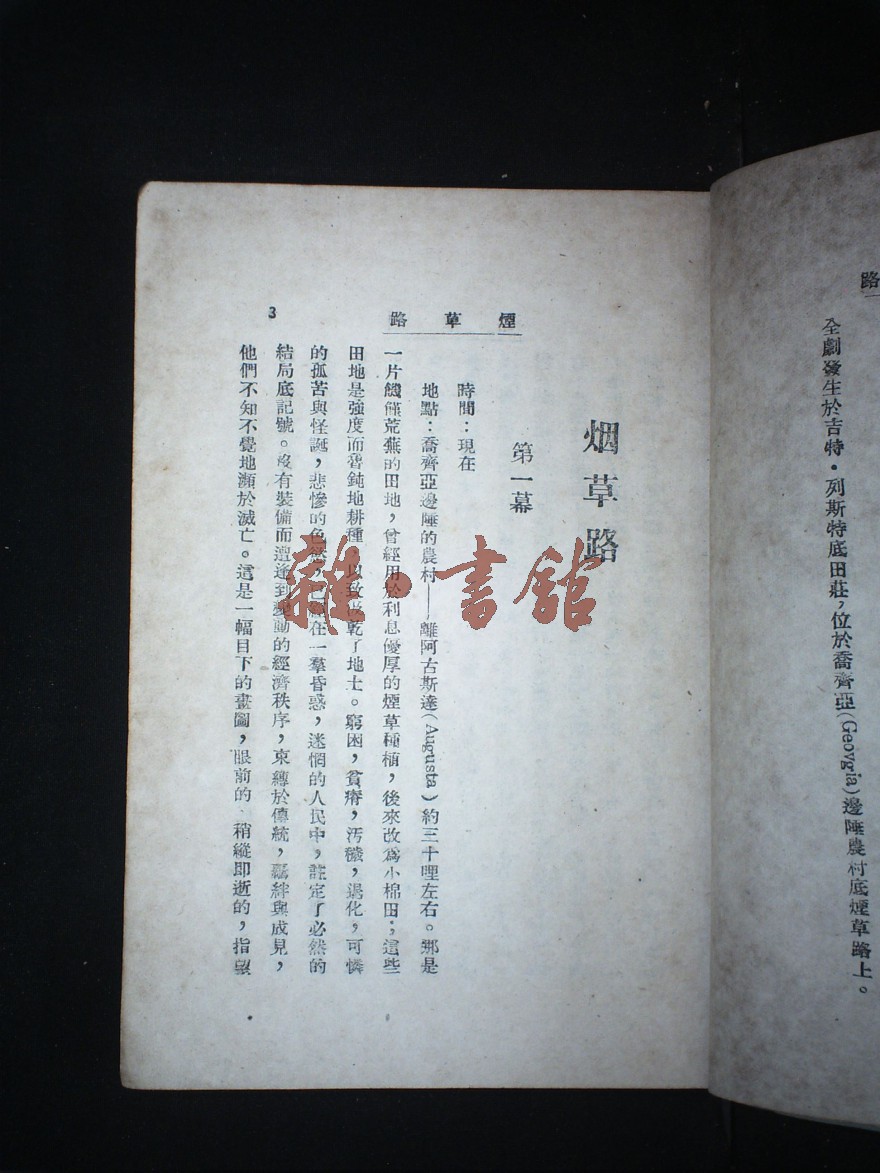 路
全劇發生於吉特·列斯特底田莊，位於喬齊亞(Geovgia)邊陲農村底煙草路上。
烟草路
第一幕
煙草路
時間：現在
地點：喬齊亞邊陲的農村——離阿古斯達(Augusta)約三十哩左右。那是
一片饑饉荒蕪的田地，曾經用於利息優厚的煙草種植，後來改爲小棉田；這些
田地是強度而魯鈍地耕種，以致 乾了地土。窮困，貧瘠，汚穢，退化，可憐
的孤苦與怪誕，悲慘的色 ， 在一羣昏惑，迷惘的人民中，註定了必然的
結局底記號。沒有裝備而遭逢到變動的經濟秩序，束縛於傳統，羈絆與成見，
他們不知不覺地瀕於滅亡。這是一幅目下的畫圖，眼前的、稍縱即逝的，指望
3
雜·書館